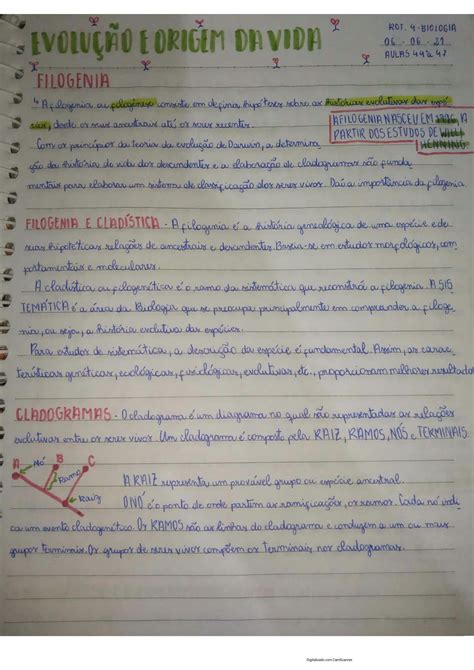 EVOLUÇÃO E ORIGEM DA VIDA
ROT. 4 - BIOLOGIA
06 - 06 - 21
AULAS 44 a 47
FILOGENIA
A filogenia ou filogênese consiste em definir hipóteses sobre as histórias evolutivas das espé
cies, desde os seus ancestrais até os seres recentes.
A FILOGENIA NASCEU EM A
PARTIR DOS ESTUDOS DE WILLI
HENNING
Com os princípios da teoria da evolução de Darwin, a determina
ção da história de vida dos descendentes e a elaboração de cladogramas são funda
mentais para elaborar um sistema de classificação dos seres vivos. Daí a importância da filogenia
FILOGENIA E CLADÍSTICA - A filogenia é a história genealógica de uma espécie e de
suas hipotéticas relações de ancestrais e descendentes. Baseia-se em estudos morfológicos, com
portamentais e moleculares.
A cladística ou filogenética é o ramo da sistemática que reconstrói a filogenia. A SIS
TEMÁTICA é a área da Biologia que se preocupa principalmente em compreender a filoge
nia, ou seja, a história evolutiva das espécies.
Para estudos de sistemática, a descrição da espécie é fundamental. Assim, as carac
terísticas genéticas, ecológicas, fisiológicas, evolutivas, etc., proporcionam melhores resultados
CLADOGRAMAS - O cladograma é um diagrama no qual são representadas as relações
evolutivas entre os seres vivos. Um cladograma é composto pela RAIZ, RAMOS, NÓS e TERMINAIS.
A Nó B C
Ramo
Raiz
A RAIZ representa um provável grupo ou espécie ancestral.
O NÓ é o ponto de onde partem as ramificações, os ramos. Cada nó indi
ca um evento cladogenético. Os RAMOS são as linhas do cladograma e conduzem a um ou mais
grupos terminais. Os grupos de seres vivos compõem os Terminais nos cladogramas.
Digitalizado com CamScanner